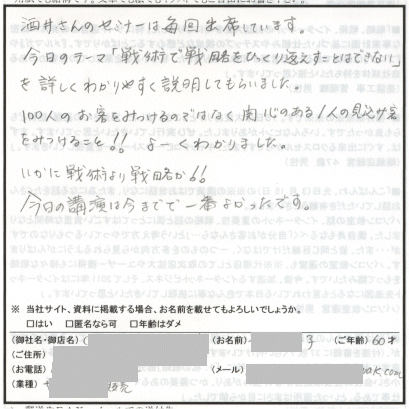 酒井さんのセミナーは毎回出席しています。
今日のテーマ「戦術で戦略をひっくり返えすことはできない」
を詳しくわかりやすく説明してもらいました。
100人のお客をみつけるのではなく関心のある1人の見込み客
をみつけること!! よーくわかりました。
いかに戦術より戦略か!!
今日の講演は今までで一番よかったです。
※ 当社サイト、資料に掲載する場合、お名前を載せてもよろしいでしょうか。
□はい □匿名なら可 □年齢はダメ
(御社名・御店名)( (お名前) 子 (ご年齢) 60才
(ご住所)
(お電話) (メール) ok.com
(業種) 販売